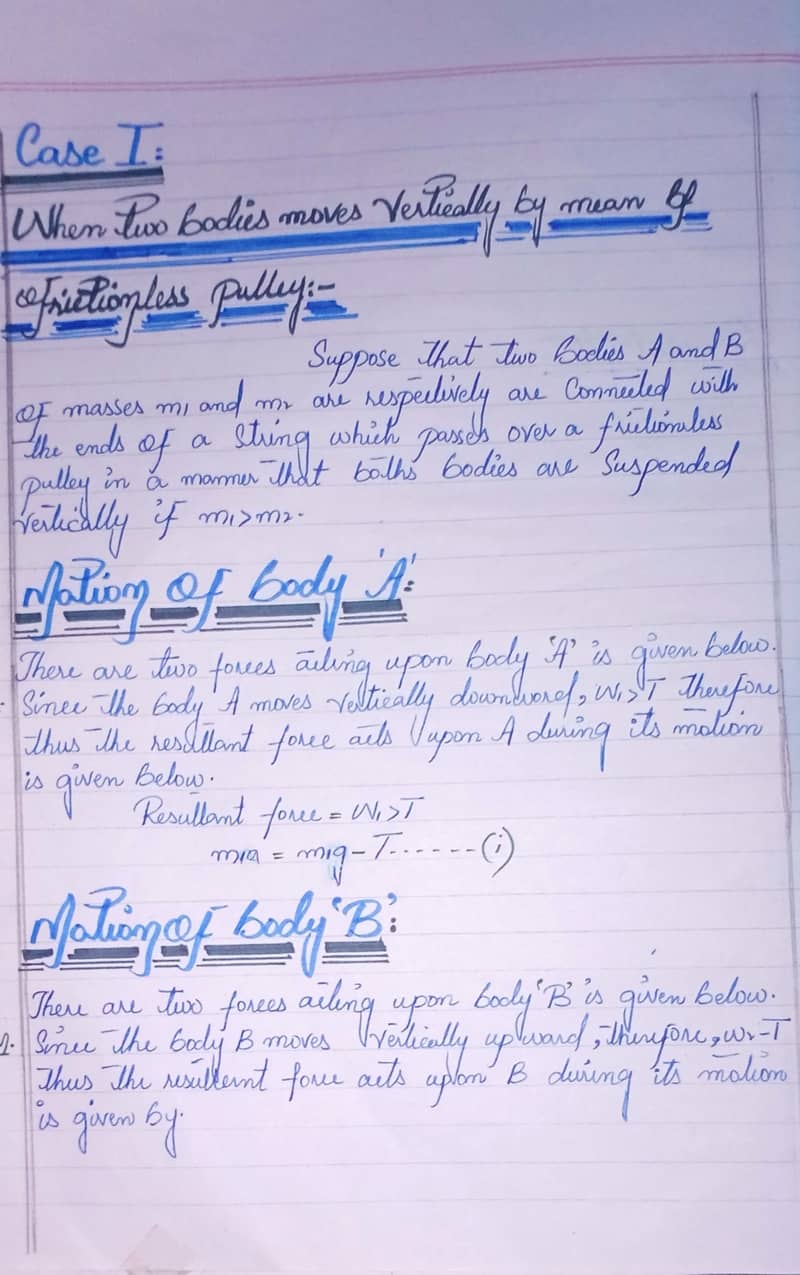 Case I:
When two bodies moves Vertically by mean of
frictionless pulley:-
Suppose that two bodies A and B
of masses m1 and m2 are respectively are Connected with
the ends of a string which passes over a frictionless
pulley in a manner that boths bodies are Suspended
vertically if m1>m2.
Motion of body 'A':
There are two forces acting upon body 'A' is given below.
Since the body A moves vertically downword, W1>T Therefore
thus the resultant force acts upon A during its motion
is given below.
Resultant force = W1>T
m1a = m1g - T......(i)
Motion of body 'B':
There are two forces acting upon body 'B' is given below.
2. Since the body B moves vertically upward, therefore, W2-T
thus the resultent force acts upon B during its motion
is given by.